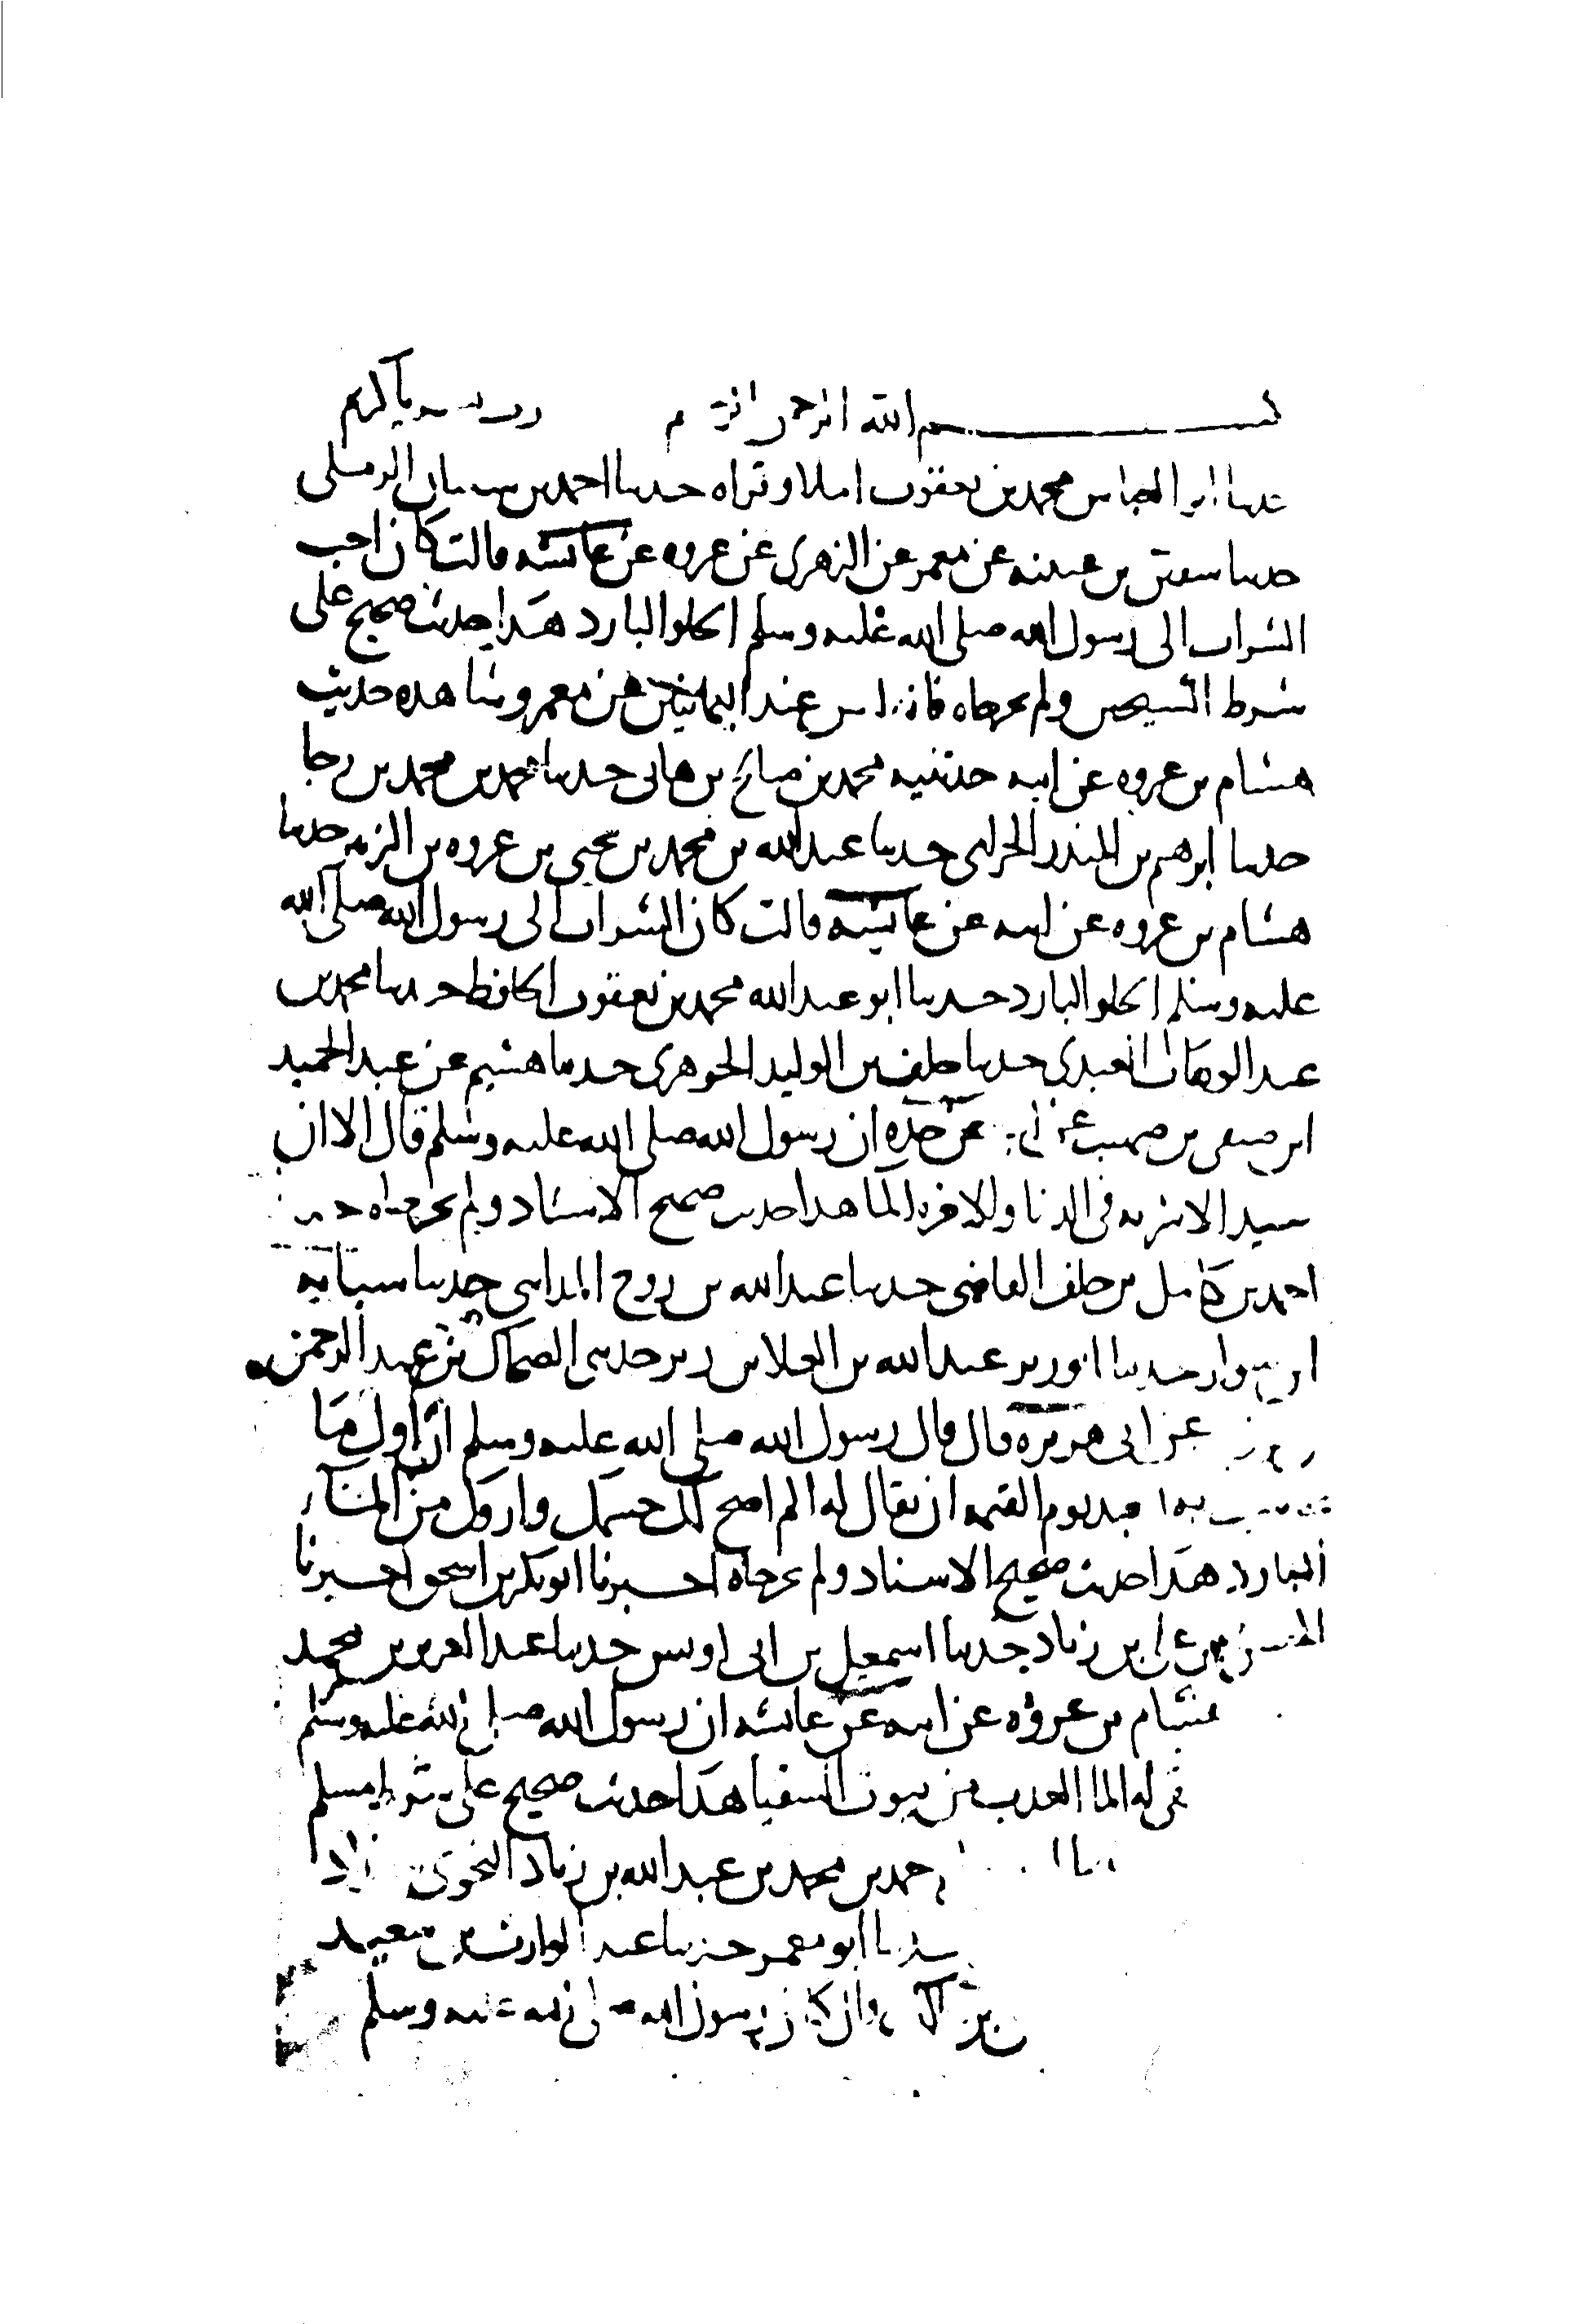 بسم الله الرحمن الرحيم يا كريم
حدثنا ابو العباس محمد بن يعقوب املا وقراه حدثنا احمد بن شيبان الرملي
حدثنا سفين بن عيينه عن معمر عن الزهري عن عروه عن عائشه قالت كان احب
الشراب الى رسول الله صلى الله عليه وسلم الحلو البارد هذا حديث صحيح على
شرط الشيخين ولم يخرجاه فانه ليس عند اليمانيين عن معمر وشاهده حديث
هشام بن عروه عن ابيه حدثنيه محمد بن صالح بن هانى حدثنا محمد بن محمد بن رجا
حدثنا ابرهيم بن المنذر الحزامي حدثنا عبد الله بن محمد بن يحيى بن عروه بن الزبير حدثنا
هشام بن عروه عن ابيه عن عائشه قالت كان الشراب الى رسول الله صلى الله
عليه وسلم الحلو البارد حدثنا ابو عبد الله محمد بن يعقوب الحافظ حدثنا محمد بن
عبد الوهاب العبدي حدثنا خلف بن الوليد الجوهري حدثنا هشيم عن عبد الحميد
ابن صيفي بن صهيب عن ابيه عن جده ان رسول الله صلى الله عليه وسلم قال الا ان
سيد الاشربه في الدنيا والاخره الما هذا حديث صحيح الاسناد ولم يخرجاه حدثنا
احمد بن كامل بن خلف القاضي حدثنا عبد الله بن روح المدايني حدثنا شبابه
ابن سوار حدثنا ابو زبر عبد الله بن العلا بن زبر حدثني الضحاك بن عبد الرحمن
عن ابي هريره قال قال رسول الله صلى الله عليه وسلم ان اول ما
يحاسب به العبد يوم القيمه ان يقال له الم اصح لك جسمك واروك من الما
البارد هذا حديث صحيح الاسناد ولم يخرجاه اخبرنا ابو بكر بن اسحق اخبرنا
الحسن بن علي بن زياد حدثنا اسمعيل بن ابي اويس حدثنا عبد العزيز بن محمد
هشام بن عروه عن ابيه عن عائشه ان رسول الله صلى الله عليه وسلم
له الما العذب من بيوت السقيا هذا حديث صحيح على شرط مسلم
احمد بن محمد بن عبد الله بن زياد النحوي
حدثنا ابو معمر حدثنا عبد الوارث بن سعيد
قال كان رسول الله صلى الله عليه وسلم